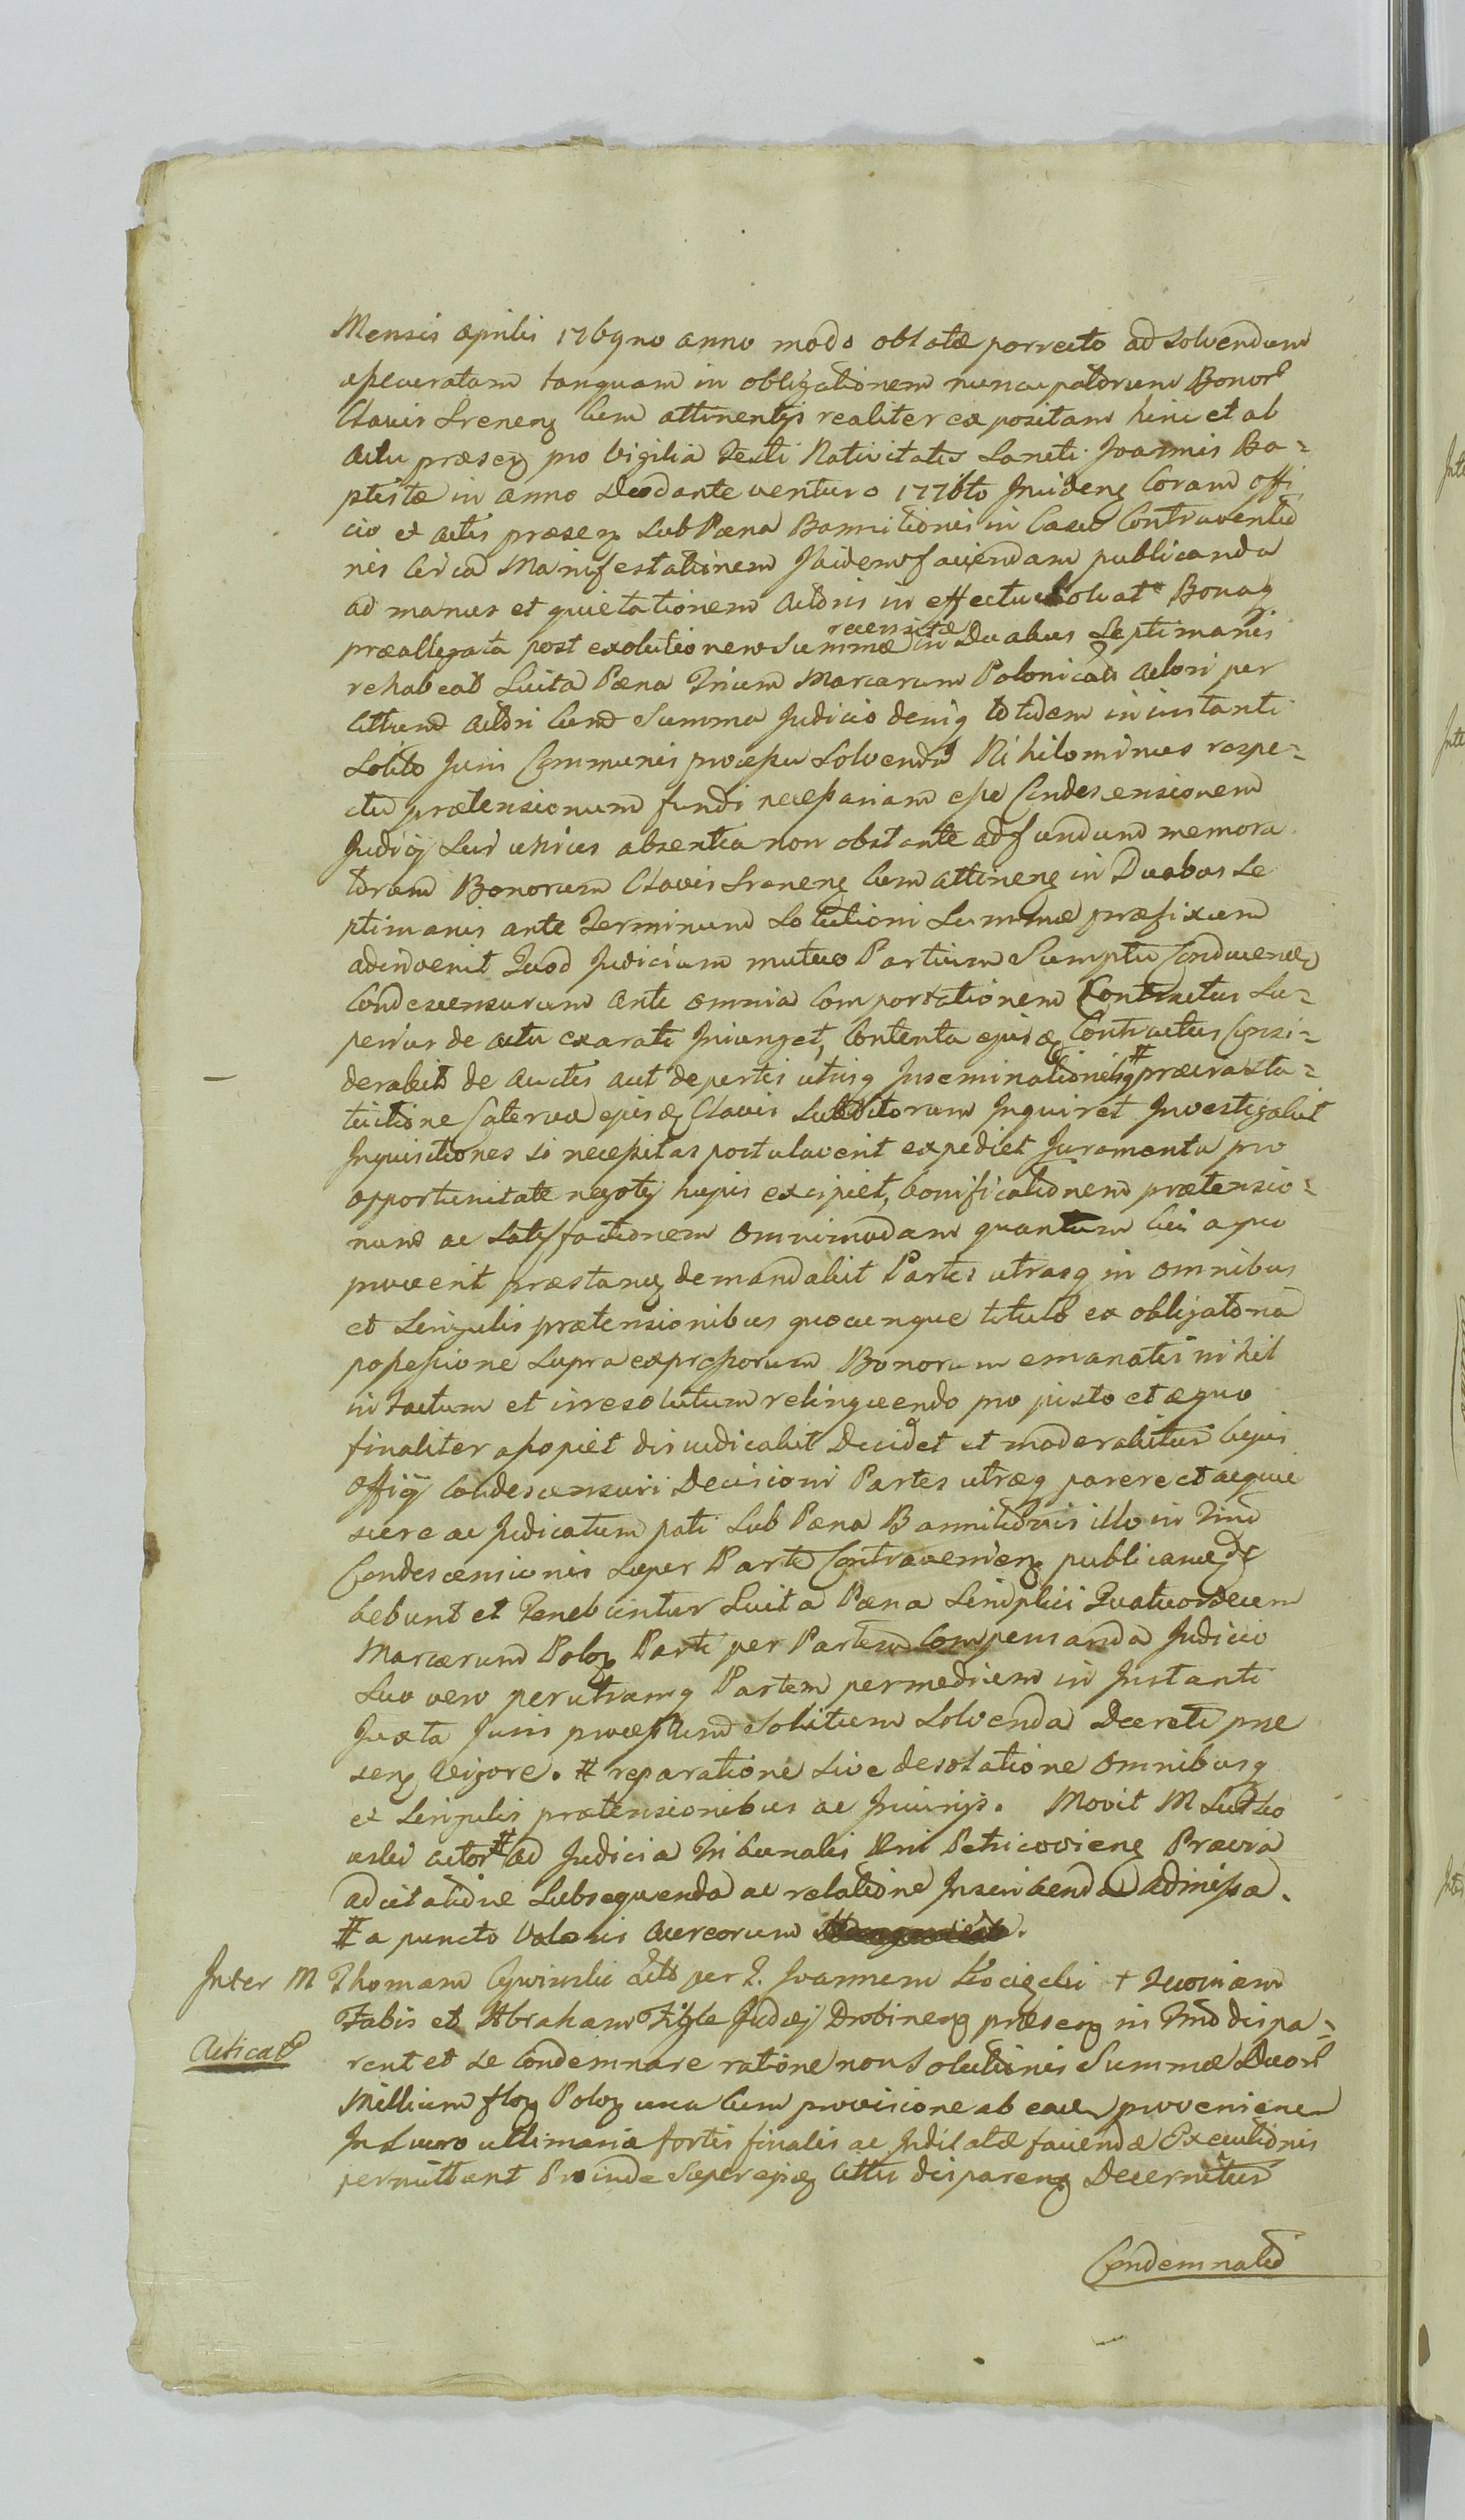 Mensis Aprilis 1769no anno modo oblatæ porrecto ad solvendum
asseveratam tanquam in obligationem nuncupatorum Bonorū
Clavis Srenensȝ cum attinentijs realiter expositam hinc et ab
actu præsenȝ pro Vigilia Festi Nativitatis Sancti Joannis Ba=
ptistæ in anno Deo dante venturo 1776to Incidenȝ Coram offi
cio et actis præsenȝ sub Pœna Bannitionis in Casu Contraventio
nis circa Manifestationem Ibidem faciendam publicanda
ad manus et quietationem Actoris in effectu solvat Bonaqȝ
præallegata post exolutionem Summæ recensitæ in Duabus Septimanis
rehabeat Luita Pœna Trium Marcarum Polonical Actori per
Cittum Actori cum Summa Judicio deniqȝ totidem in instanti
Solito Juris Communis processu solvenda Nihilominus respe=
ctu prætensionum fundi necessariam esse Condescensionem
Judicij sui unius absentia non obstante ad fundum memora
torum Bonorum Clavis Srenenȝ cum attinenȝ in Duabus Se
ptimanis ante Terminum Solutioni Summæ præfixum
adinvenit Quod Judicium mutuo Partium Sumptu
Condescensurum ante omnia Comportationem Contractus Su=
perius de actu exarati Injunget, Contenta ejusqȝ Contractus Consi=
derabit de auctis aut desertis utriusqȝ Inseminationibqȝ #
Caterva ejusqȝ Clavis Subditorum Inquiret Investigabit
Inquisitiones si necessitas postulaverit expediet Juramenta pro
opportunitate negotij hujus excipiet, bonificationem prætensio=
num ac satisfactionem omnimodam quantum cui a quo
provenerit præstanȝ demandabit Partes utrasqȝ in omnibus
et singulis prætensionibus quocunque titulo ex obligatoria
possessione supra expressorum Bonorum emanatis nihil
intactum et irresolutum relinquendo pro justo et æquo
finaliter assopiet disiudicabit Decidet et moderabitur Cujus
Officij Condescensuri Decisioni Partes utræqȝ parere et acquie
scere ac Judicatum pati sub Pœna Bannitionis illo in Tmō
Condescensionis super Parte Contravenienȝ publicanȝ de
bebunt et Tenebuntur Luita Pœna Simplici Quatuordecim
Marcarum Polonȝ Parti per Partem Compensanda Judicio
suo vero per utramqȝ Partem per medium in Instanti
Juxta Juris processum solitum solvenda Decreti præ
senȝ vigore. # reparatione sive desolatione omnibusqȝ
et singulis prætensionibus ac Injurijs. Movit M
Actor # ad Judicia Tribunalis Rni Petricovienȝ Prævia
adcitatione subsequenda ac relatione Inscribenda admissa.
# a puncto Valoris aureorum
Inter M Thomam Cywinski Act per G. Joannem + Quoniam
Fabis et Abraham Judæij Drobinenȝ præsenȝ in Tmō dispa=
Acticat rent et se Condemnare ratione non Solutionis Summæ Duorū
Millium floȝ Poloȝ una cum provisione ab eadem provenien
In Lucro ultimaria fortis finalis ac Indilatæ faciendæ Executionis
permittunt Proinde super ejusqȝ Cittis disparenȝ Decernitur
Condemnatio